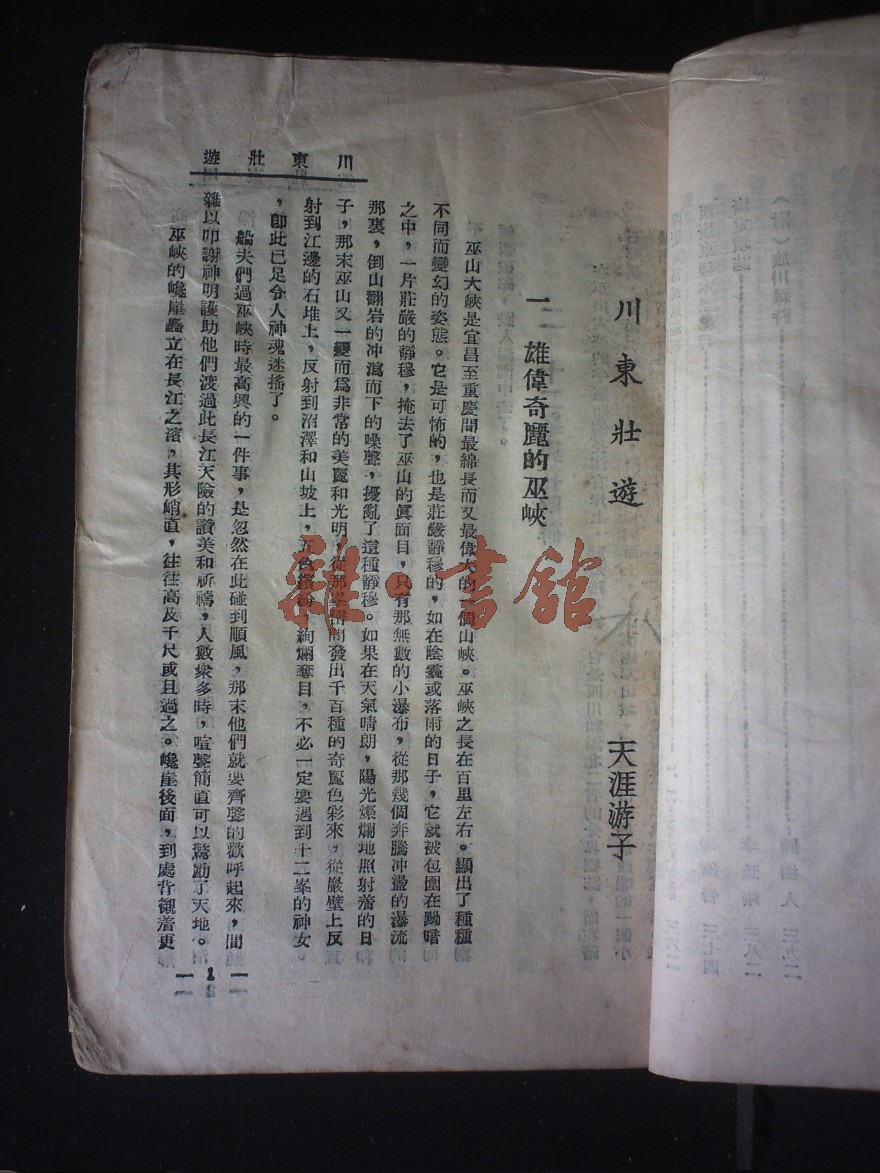 川東壯遊
川東壯遊
天涯游子
一 雄偉奇麗的巫峽
巫山大峽是宜昌至重慶間最綿長而又最偉大的一個山峽。巫峽之長在百里左右。顯出了種種
不同而變幻的姿態。它是可怖的,也是莊嚴靜穆的,如在陰霾或落雨的日子,它就被包圍在黝暗
之中,一片莊嚴的靜穆,掩去了巫山的眞面目,只有那無數的小瀑布,從那幾個奔騰冲盪的瀑流
那裏,倒山翻岩的冲瀉而下的噪聲,擾亂了這種靜穆。如果在天氣晴朗,陽光燦爛地照射着的日
子,那末巫山又一變而爲非常的美麗和光明,從那峯出發出千百種的奇麗色彩來,從嚴壁上反
射到江邊的石堆上,反射到沼澤和山坡上,五色,絢爛奪目,不必一定要遇到十二峯的神女
,卽此已足令人神魂迷搖了。
船夫們過巫峽時最高興的一件事,是忽然在此碰到順風,那末他們就要齊聲的歡呼起來,間
雜以叩謝神明護助他們渡過此長江天險的讚美和祈禱,人數衆多時,喧聲簡直可以驚動了天地。
巫峽的巉崖矗立在長江之濱,其形峭直,往往高及千尺或且過之。巉崖後面,到處背襯着更
1
雜·書館